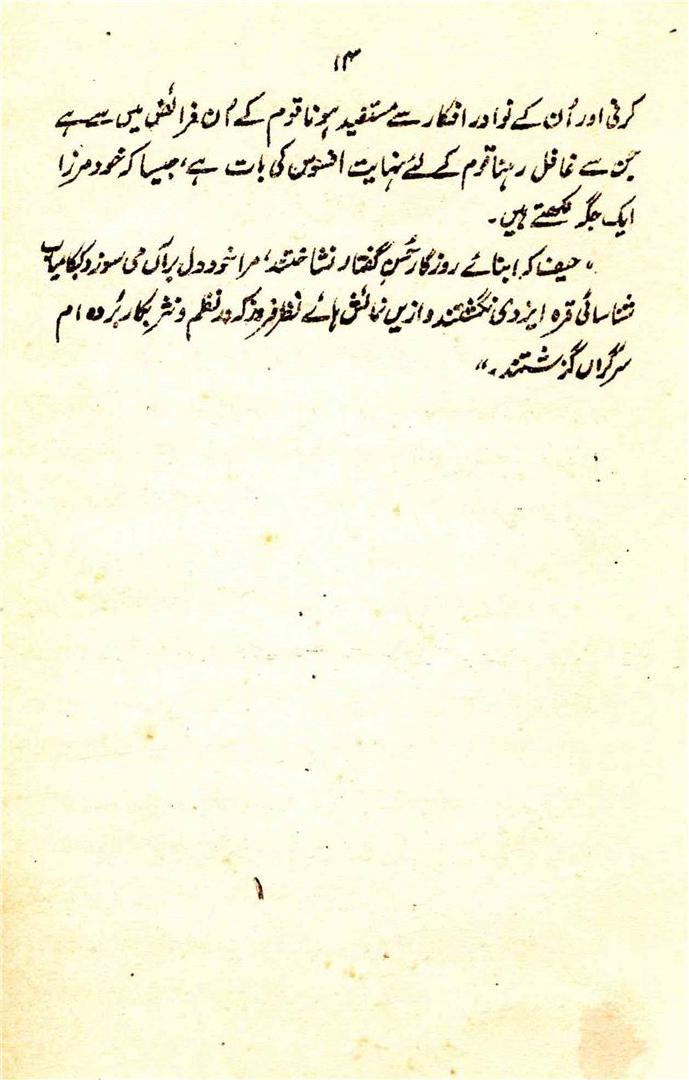 ۱۴
کرنی اور اُن کے نوادر افکار سے مستفید ہونا قوم کے اُن فرائض میں سے ہے
جن سے غافل رہنا قوم کے لئے نہایت افسوس کی بات ہے، جیسا کہ خود مرزا
ایک جگہ لکھتے ہیں۔
"حیف کہ ابنائے روزگار حُسنِ گفتار نشاختند، مرا خود دل بر آں می سوزد کہ کامیاب
شناسائی فرہ ایزدی نگشتند و ازیں نمائش ہائے نظر فروز کہ در نظم و نثر بکار بُردہ ام
سرگراں گزشتند۔"